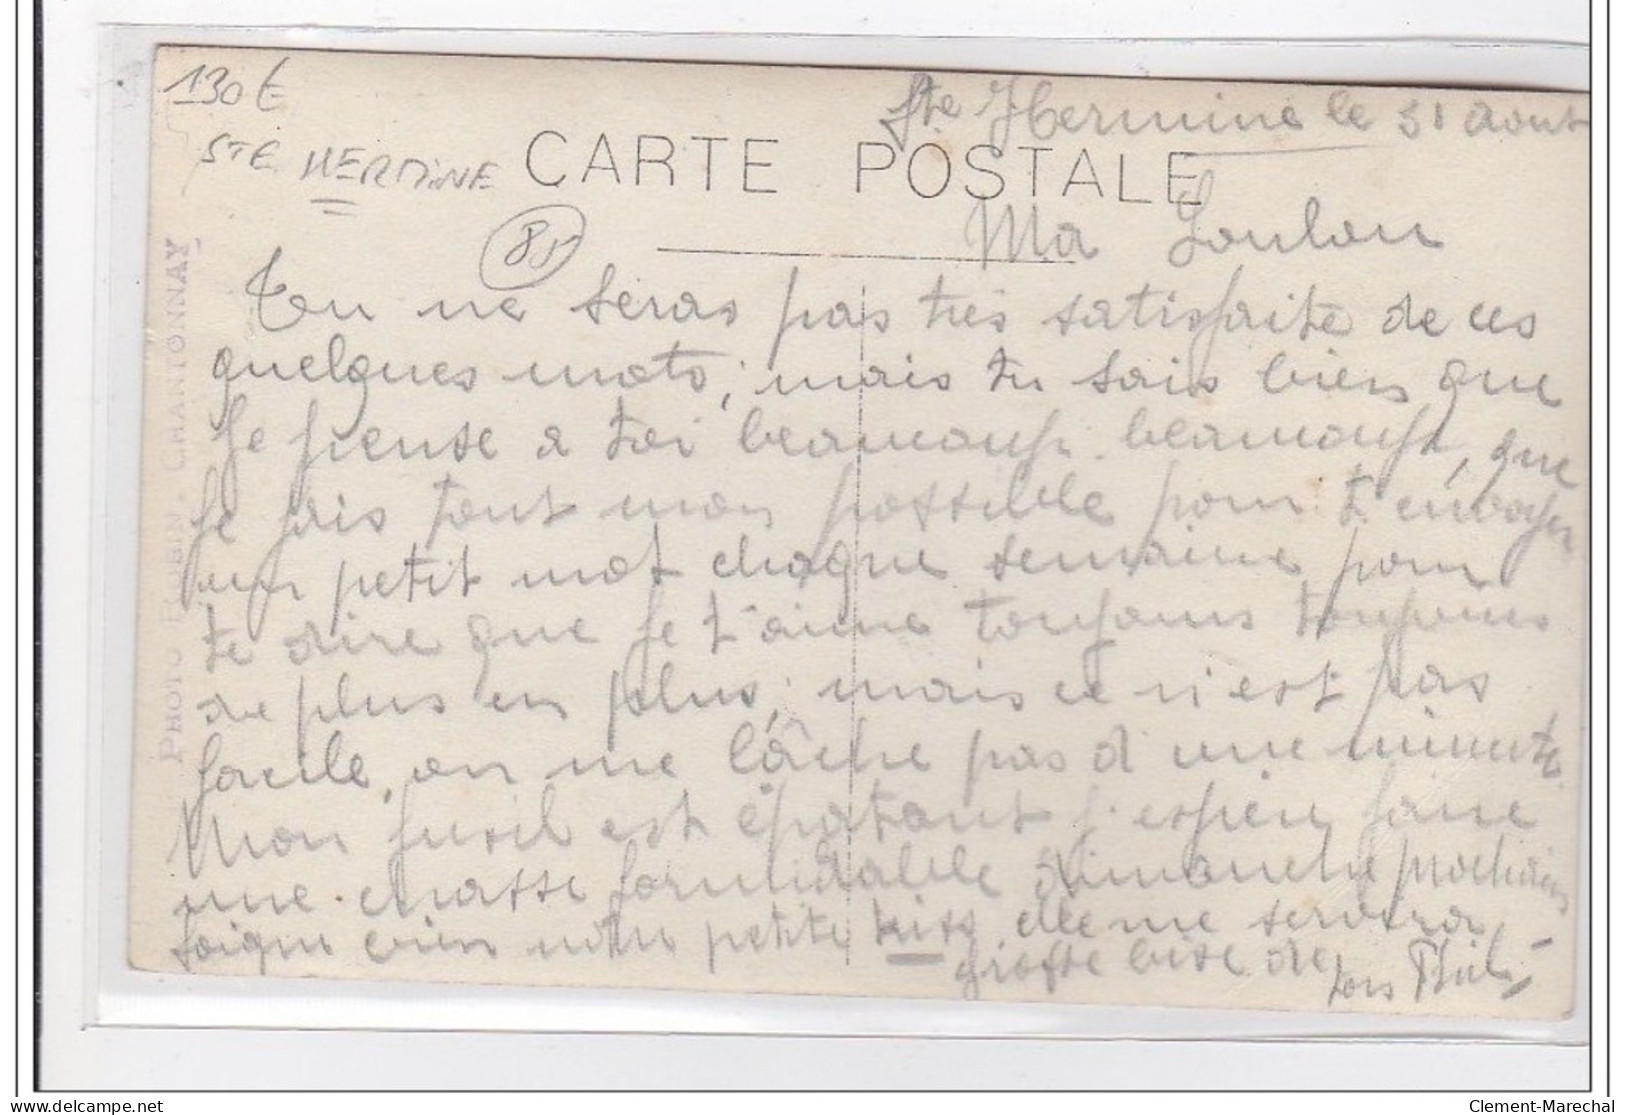 130 €
STE HERMINE
85
CARTE POSTALE
PHOTO ROBIN - CHANTONNAY
Ste Hermine le 31 aout
Ma Loulou
Tu ne seras pas très satisfaite de ces
quelques mots, mais tu sais bien que
je pense à toi beaucoup beaucoup, que
je fais tout mon possible pour t'envoyer
un petit mot chaque semaine pour
te dire que je t'aime toujours toujours
de plus en plus, mais ce n'est pas
facile, on me lâche pas d'une minute
Mon fusil est épatant j'espère faire
une chasse formidable dimanche prochain
soigne bien notre petite kiss, elle me servira
grosse bise de ton
Clement-Marechal